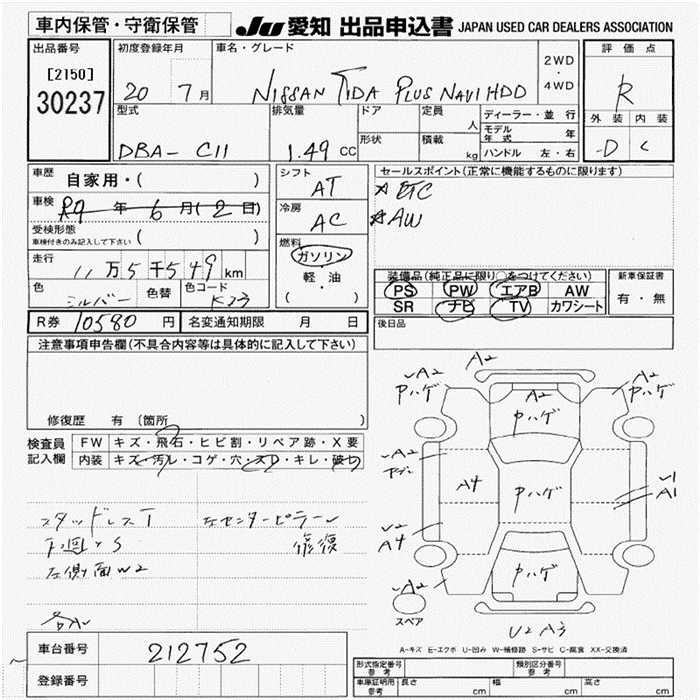 車内保管・守衛保管
JU 愛知 出品申込書 JAPAN USED CAR DEALERS ASSOCIATION
出品番号
[2150]
30237
初度登録年月
20 7月
車名・グレード
NISSAN TIDA PLUS NAVI HDD
2WD
・
4WD
評価点
R
外装 内装
D C
型式
DBA- C11
排気量
1.49 CC
ドア
形状
定員
人
積載
kg
ディーラー・並行
モデル年式 年
ハンドル 左・右
車歴
自家用・( )
車検
R9年6月(2日)
受検形態
車検付きのみ記入して下さい ( )
走行
11万5千549km
色
シルバー
色替
色コード
K23
シフト
AT
冷房
AC
燃料
ガソリン
軽・油
( )
セールスポイント(正常に機能するものに限ります)
☆ ETC
☆ AW
装備品(純正品に限り○をつけてください)
PS PW エアB AW
SR ナビ TV カワシート
新車保証書
有・無
後日品
R券 10580 円
名変通知期限 月 日
注意事項申告欄(不具合内容等は具体的に記入して下さい)
修復歴 有 (箇所 )
検査員
記入欄
FW キズ・飛石・ヒビ割・リペア跡・X要
内装 キズ・汚レ・コゲ・穴・スレ・キレ・破レ
スタッドレスT
下廻りS
左側面W2
左センターピラー
修復
A2
A2
Pハゲ
A2
Pハゲ
A2
Pハゲ
A2
A4
Pハゲ
U1
A1
U2
A4
A2
Pハゲ
スペア
U2 A3
A-キズ E-エクボ U-凹み W-補修跡 S-サビ C-腐食 XX-交換済
車台番号
212752
登録番号
形式指定番号
参考
類別区分番号
参考
車庫証明用
参考
長さ cm
幅 cm
高さ cm